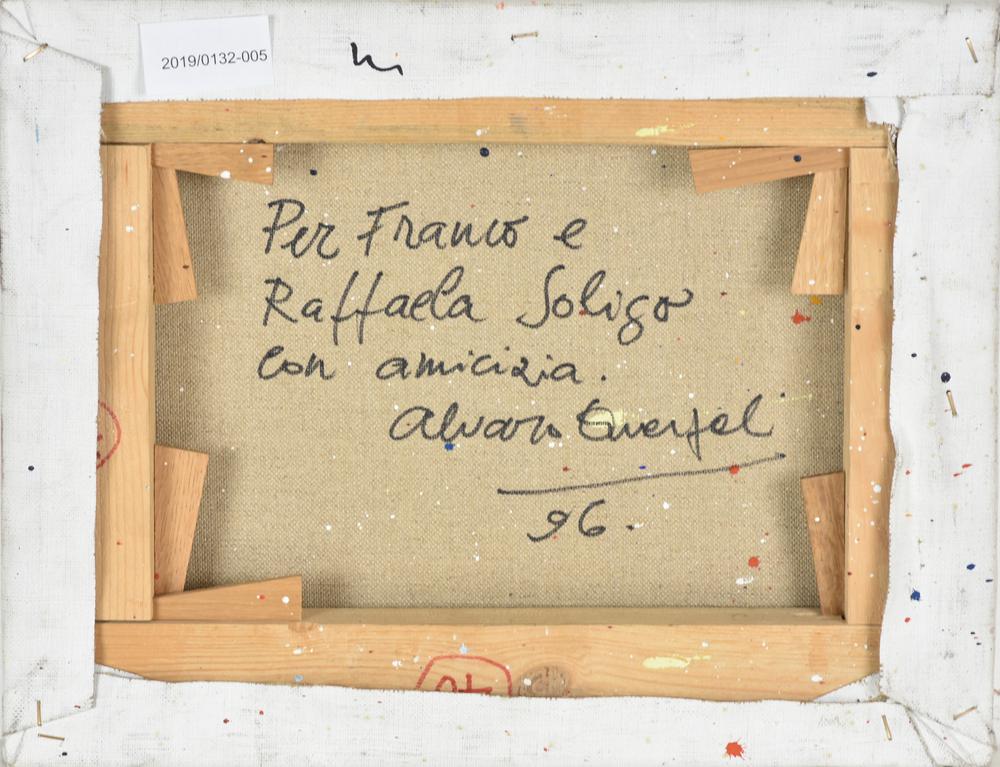 2019/0132-005
Per Franco e
Raffaela Soligo
con amicizia.
Alvaro
96.